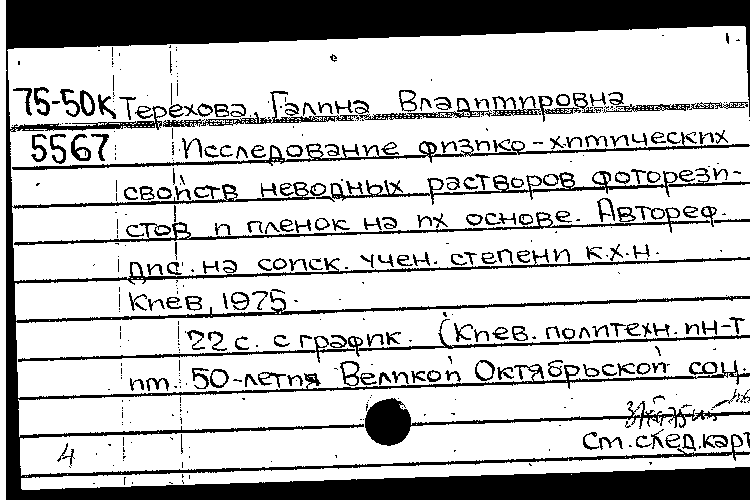 75-50к Терехова, Галина Владимировна
5567 Исследование физико-химических
свойств неводных растворов фоторези-
стов и пленок на их основе. Автореф.
дис. на соиск. учен. степени к.х.н.
Киев, 1975.
22 с. с график. (Киев. политехн. ин-т
им. 50-летия Великой Октябрьской соц.
См. след. карт
4